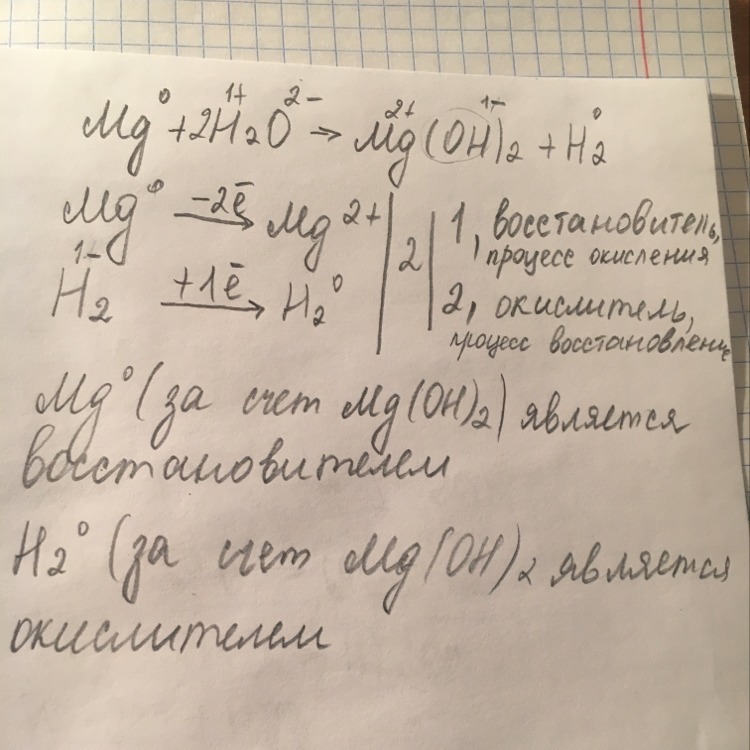 Mg⁰ + 2H₂¹⁺O²⁻ → Mg²⁺(OH)₂¹⁻ + H₂⁰
Mg⁰ −2ē → Mg²⁺ | 2 | 1, восстановитель,
процесс окисления
H₂¹⁻ +1ē → H₂⁰ | 2, окислитель,
процесс восстановление
Mg⁰ (за счет Mg(OH)₂) является
восстановителем
H₂⁰ (за счет Mg(OH)₂ является
окислителем